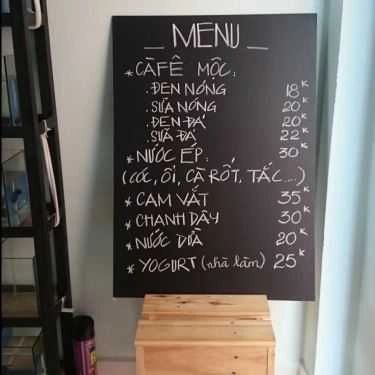 _ MENU _
* CÀFÊ MỘC:
. ĐEN NÓNG 18K
. SỮA NÓNG 20K
. ĐEN ĐÁ 20K
. SỮA ĐÁ 22K
* NƯỚC ÉP: 30K
(CÓC, ỔI, CÀ RỐT, TẮC...)
* CAM VẮT 35K
* CHANH DÂY 30K
* NƯỚC DỪA 20K
* YOGURT (nhà làm) 25K